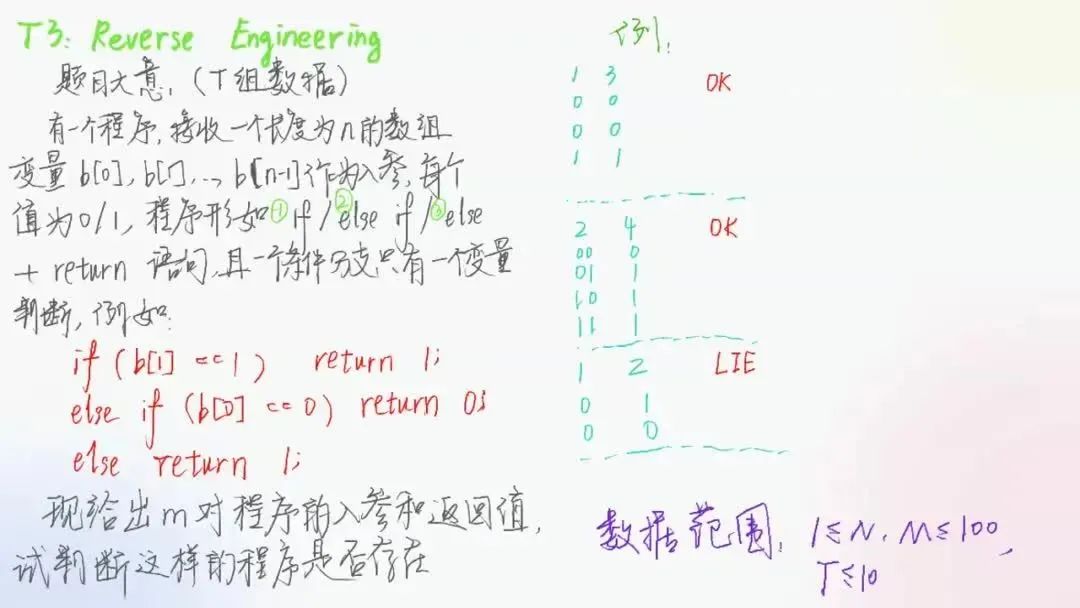 T3: Reverse Engineering
题目大意:(T组数据)
有一个程序,接收一个长度为n的数组
变量b[0],b[1],..,b[n-1]作为入参,每个
值为0/1,程序形如①if/②else if/③else
+ return 语句,且一个条件分支只有一个变量
判断,例如:
if (b[1] == 1) return 1;
else if (b[0] == 0) return 0;
else return 1;
现给出m对程序的入参和返回值,
试判断这样的程序是否存在
例:
1 3 OK
0 0
0 0
1 1
2 4 OK
00 0
01 1
10 1
11 1
1 2 LIE
0 1
0 0
数据范围: 1≤N,M≤100,
T≤10